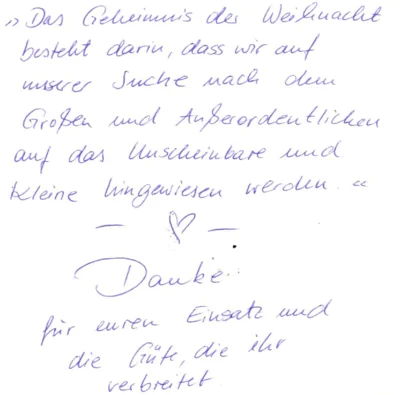 „Das Geheimnis der Weihnacht
besteht darin, dass wir auf
unserer Suche nach dem
Großen und Außerordentlichen
auf das Unscheinbare und
Kleine hingewiesen werden."
— ♡ —
Danke..
für euren Einsatz und
die Güte, die ihr
verbreitet.